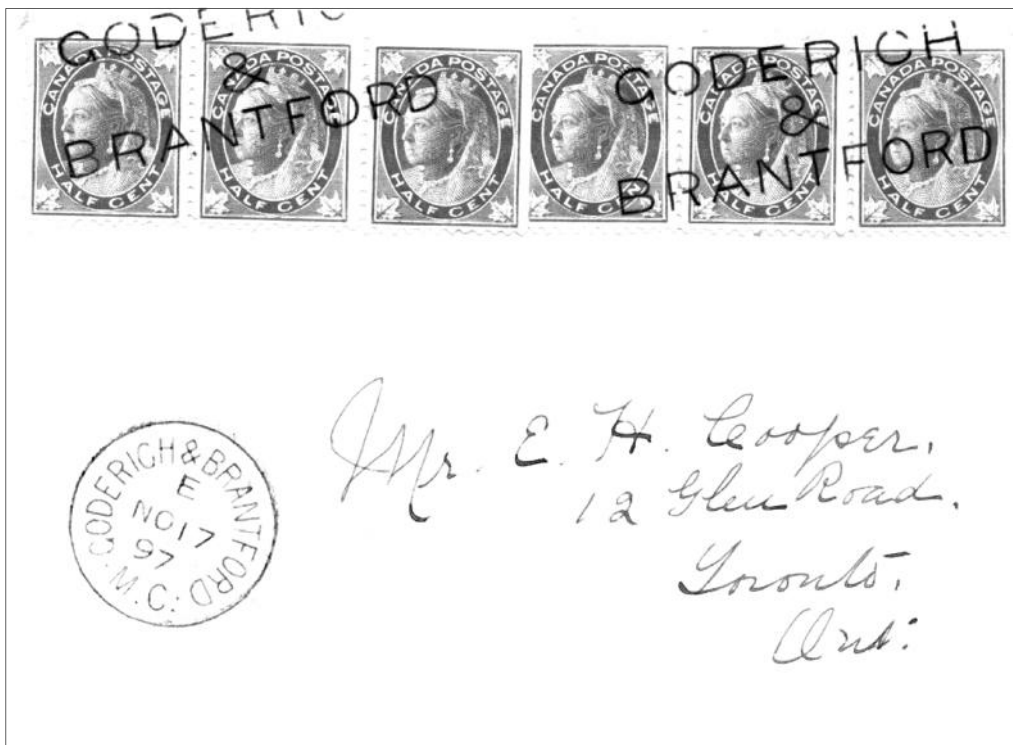 GODERIC
&
BRANTFORD
GODERICH
&
BRANTFORD
CANADA POSTAGE
HALF CENT
CANADA POSTAGE
HALF CENT
CANADA POSTAGE
HALF CENT
CANADA POSTAGE
HALF CENT
CANADA POSTAGE
HALF CENT
CANADA POSTAGE
HALF CENT
GODERICH & BRANTFORD
E
NO 17
97
M.C.
Mr. E. H. Cooper,
12 Glen Road.
Toronto,
Ont: